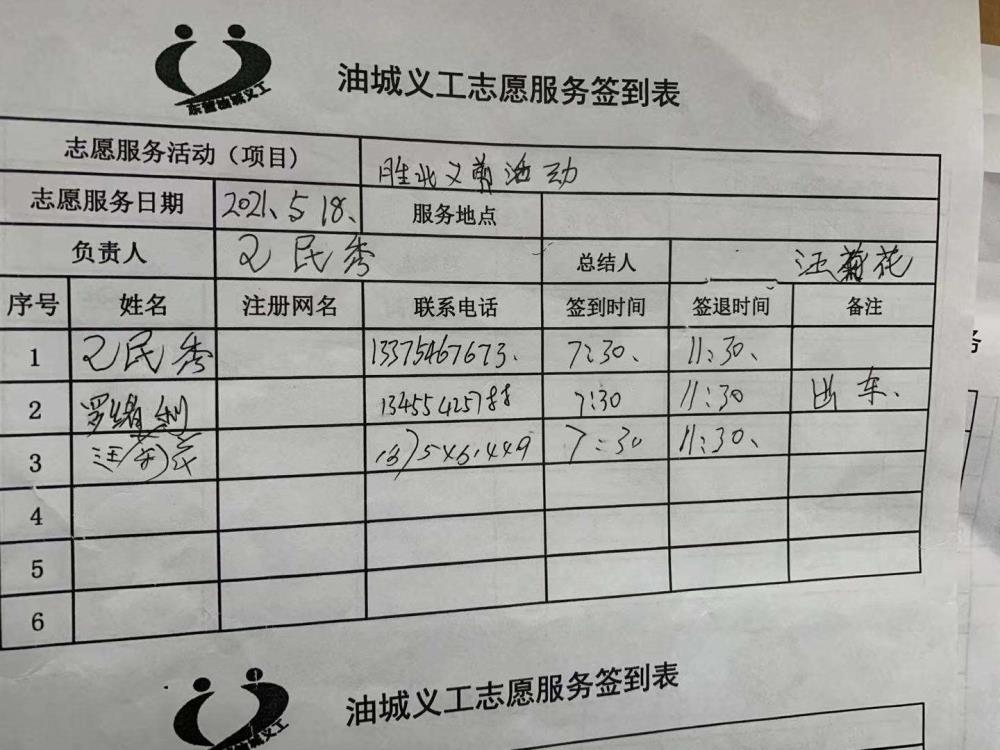 东营油城义工
油城义工志愿服务签到表
志愿服务活动（项目） 胜北义剪活动
志愿服务日期 2021、5 18、 服务地点
负责人 民秀 总结人 汪菊花
序号 姓名 注册网名 联系电话 签到时间 签退时间 备注
1 民秀 13375467673、 7:30、 11:30、
2 罗 13455425788 7:30 11:30 出车、
3 汪 7:30 11:30、
4
5
6
油城义工志愿服务签到表
务